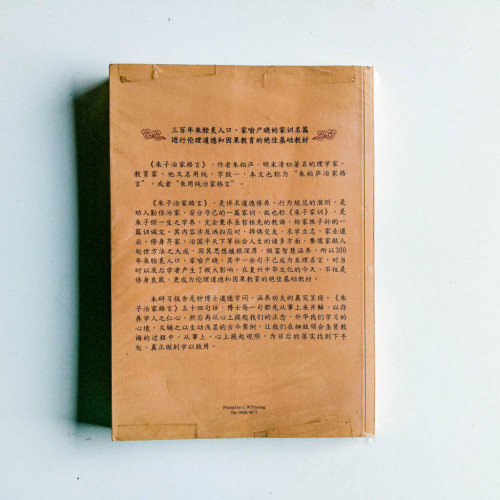 三百年来脍炙人口，家喻户晓的家训名篇
进行伦理道德和因果教育的绝佳基础教材
《朱子治家格言》，作者朱柏庐，明末清初著名的理学家、
教育家，他又名用纯，字致一，本文也称为“朱柏庐治家格
言”，或者“朱用纯治家格言”。
《朱子治家格言》，是讲求道德修养，行为规范的准则，是
劝人勤俭治家，安分守己的一篇家训，故也称《朱子家训》，是
朱子倾一生之学养，完全秉承圣哲祖先的教诲，给家族子孙的一
篇训诫文。其内容涉及洒扫应对，择偶交友，求学立志，家业道
业，修身齐家，治国平天下等社会人生的诸多方面，集儒家做人
处世方法之大成，因其思想植根深厚，极富智慧涵养，所以300
年来脍炙人口，家喻户晓，其中一些句子已成为至理名言，对当
时以及后学者产生了极大影响，在复兴中华文化的今天，不仅是
修身良箴，更成为伦理道德和因果教育的绝佳基础教材。
本研习报告是钟博士道德学问、涵养功夫的真实呈现。《朱
子治家格言》五十四句话，博士每一句都先从事上来开解，以存
养学人之仁心，然后再从心上提起我们的正念，升华我们学习的
心境，又辅之以生动浅显的古今案例，让我们在细致领会圣贤教
诲的过程中，从事上、心上提起观照，为日后的落实找到下手
处，真正做到学以致用。
Printed by C.W.Printing